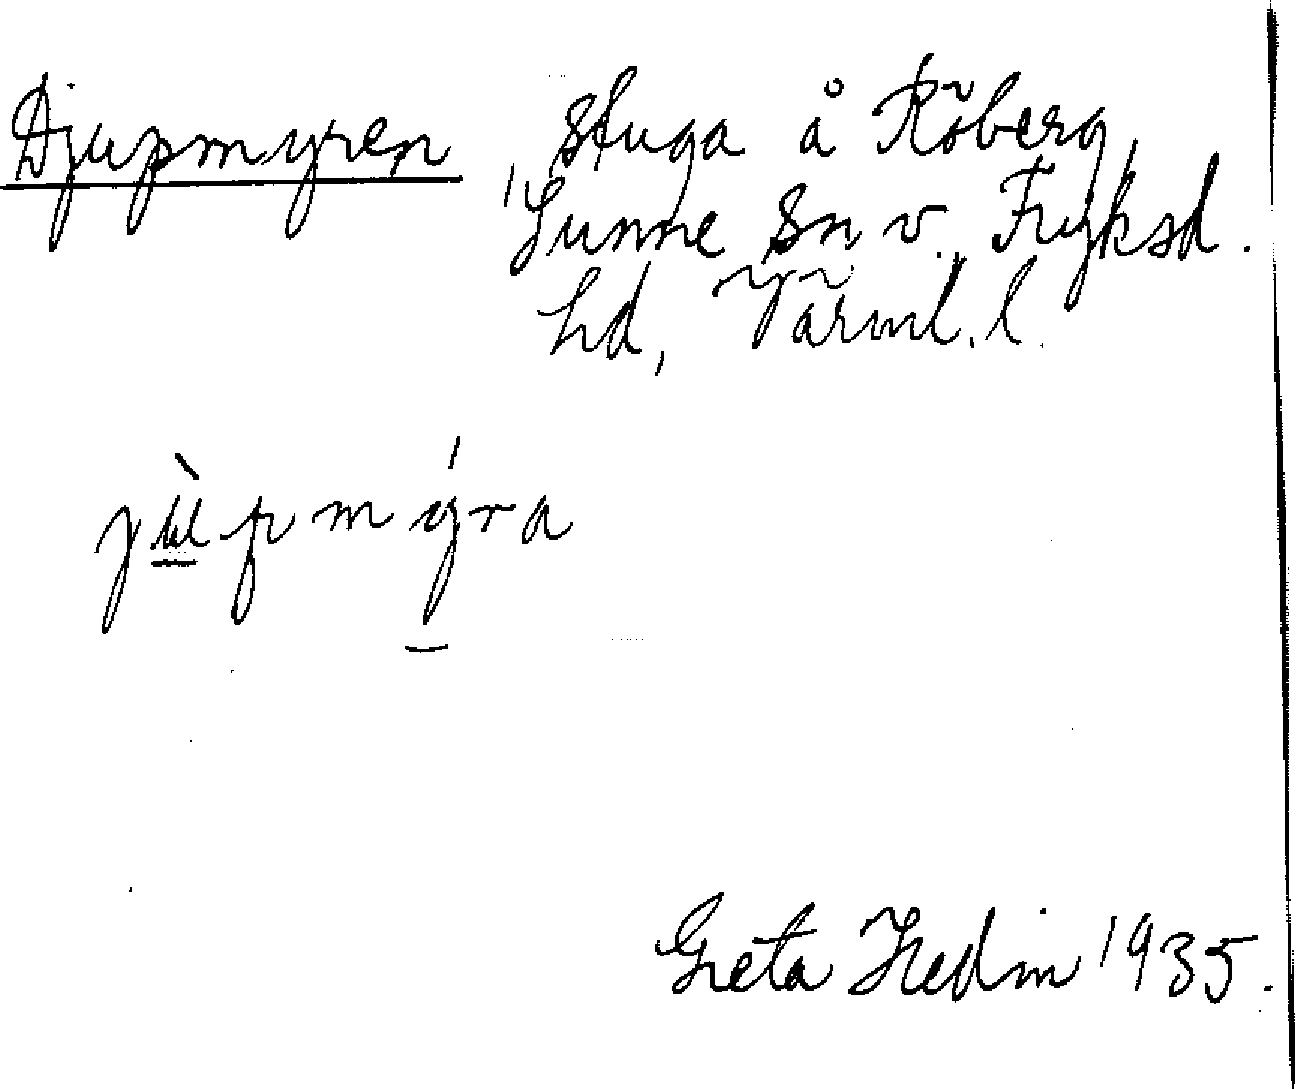 Djupmyren, stuga å Röberg,
Sunne sn v. Fryksd.
hd, Värml. l.
jùpmýra
Greta Hedin 1935.